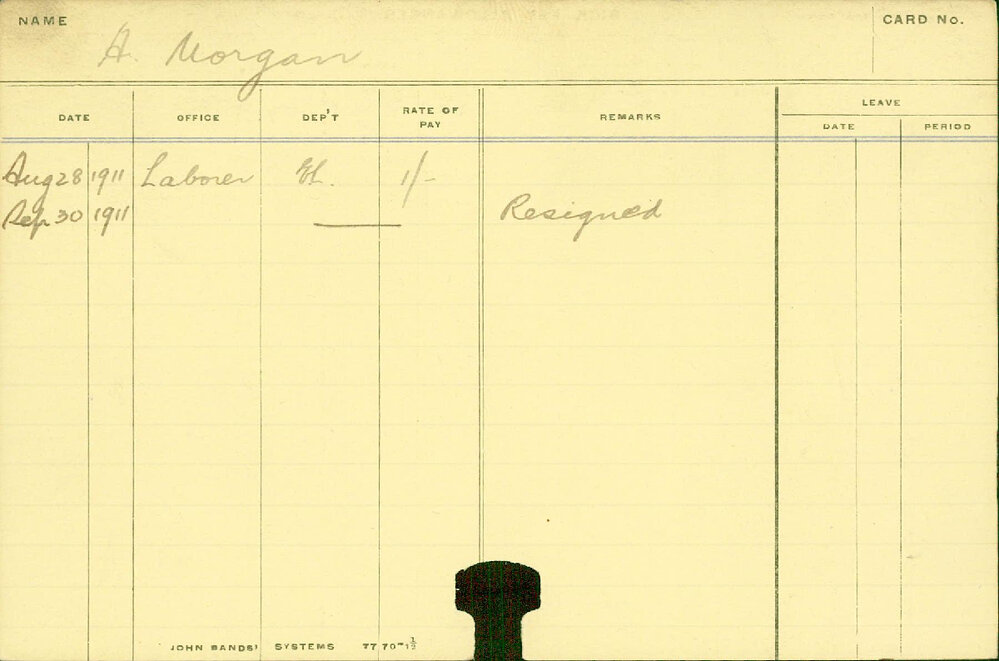 NAME
CARD No.
A. Morgan
LEAVE
DATE OFFICE DEP'T RATE OF PAY REMARKS DATE PERIOD
Aug 28 1911 Laborer 1/-
Sep 30 1911 Resigned
JOHN SANDS' SYSTEMS 77 70